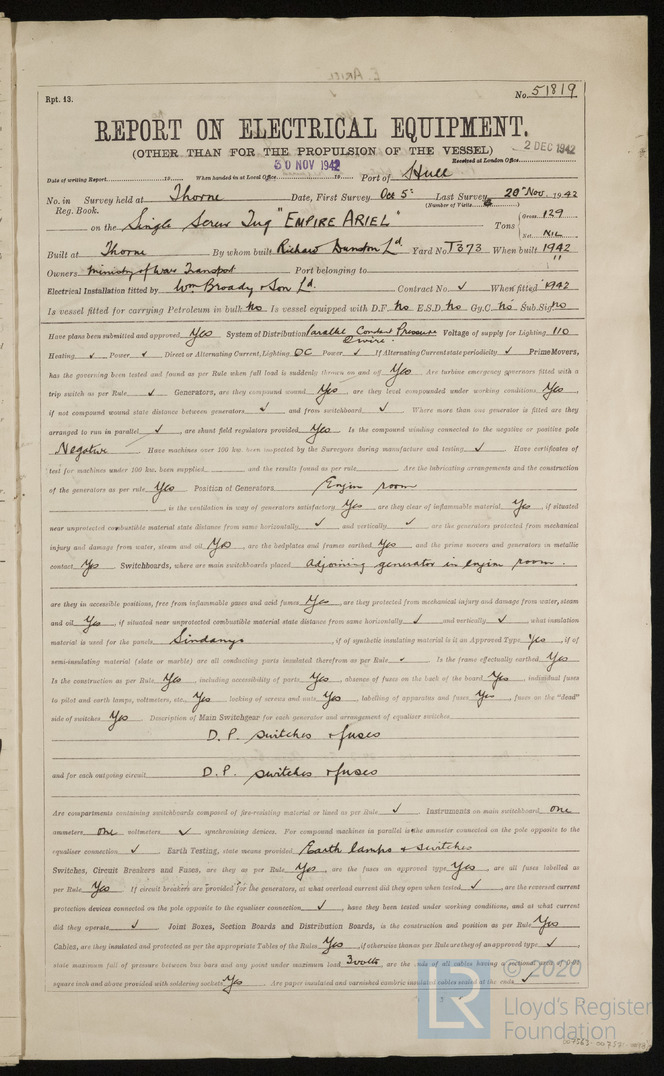 E. ARIEL
Rpt. 13.
No. 51819
REPORT ON ELECTRICAL EQUIPMENT.
(OTHER THAN FOR THE PROPULSION OF THE VESSEL)
2 DEC 1942
Received at London Office
30 NOV 1942
Date of writing Report 19 When handed in at Local Office 19 Port of Hull
No. in Survey held at Thorne Date, First Survey Oct 5: Last Survey 20th Nov. 1942
Reg. Book. (Number of Visits 6)
on the Single Screw Tug "EMPIRE ARIEL" Tons { Gross 129
Net NIL
Built at Thorne By whom built Richard Dunston Ld Yard No. T373 When built 1942
Owners Ministry of War Transport Port belonging to
Electrical Installation fitted by Wm Broady & Son Ld. Contract No. ✓ When fitted 1942
Is vessel fitted for carrying Petroleum in bulk No Is vessel equipped with D.F. No E.S.D. No Gy.C. No Sub.Sig. No
Have plans been submitted and approved Yes System of Distribution Parallel Constant Pressure 2 wire. Voltage of supply for Lighting 110
Heating ✓ Power ✓ Direct or Alternating Current, Lighting DC Power ✓ If Alternating Current state periodicity ✓ Prime Movers,
has the governing been tested and found as per Rule when full load is suddenly thrown on and off Yes Are turbine emergency governors fitted with a
trip switch as per Rule ✓ Generators, are they compound wound Yes, are they level compounded under working conditions Yes,
if not compound wound state distance between generators ✓ and from switchboard ✓ Where more than one generator is fitted are they
arranged to run in parallel ✓, are shunt field regulators provided Yes Is the compound winding connected to the negative or positive pole
Negative Have machines over 100 kw. been inspected by the Surveyors during manufacture and testing ✓ Have certificates of
test for machines under 100 kw. been supplied and the results found as per rule Are the lubricating arrangements and the construction
of the generators as per rule Yes Position of Generators Engine room
, is the ventilation in way of generators satisfactory Yes are they clear of inflammable material Yes, if situated
near unprotected combustible material state distance from same horizontally ✓ and vertically ✓ are the generators protected from mechanical
injury and damage from water, steam and oil Yes, are the bedplates and frames earthed Yes and the prime movers and generators in metallic
contact Yes Switchboards, where are main switchboards placed adjoining generator in engine room.
are they in accessible positions, free from inflammable gases and acid fumes Yes are they protected from mechanical injury and damage from water, steam
and oil Yes, if situated near unprotected combustible material state distance from same horizontally ✓ and vertically ✓ what insulation
material is used for the panels Sindanyo, if of synthetic insulating material is it an Approved Type Yes, if of
semi-insulating material (slate or marble) are all conducting parts insulated therefrom as per Rule ✓ Is the frame effectually earthed Yes
Is the construction as per Rule Yes, including accessibility of parts Yes, absence of fuses on the back of the board Yes, individual fuses
to pilot and earth lamps, voltmeters, etc. Yes locking of screws and nuts Yes labelling of apparatus and fuses Yes, fuses on the "dead"
side of switches Yes Description of Main Switchgear for each generator and arrangement of equaliser switches
D.P. switches & fuses
and for each outgoing circuit D.P. switches & fuses
Are compartments containing switchboards composed of fire-resisting material or lined as per Rule ✓ Instruments on main switchboard one
ammeters one voltmeters ✓ synchronising devices. For compound machines in parallel is the ammeter connected on the pole opposite to the
equaliser connection ✓ Earth Testing, state means provided Earth lamps & switches
Switches, Circuit Breakers and Fuses, are they as per Rule Yes, are the fuses an approved type Yes, are all fuses labelled as
per Rule Yes If circuit breakers are provided for the generators, at what overload current did they open when tested ✓, are the reversed current
protection devices connected on the pole opposite to the equaliser connection ✓, have they been tested under working conditions, and at what current
did they operate ✓ Joint Boxes, Section Boards and Distribution Boards, is the construction and position as per Rule Yes
Cables, are they insulated and protected as per the appropriate Tables of the Rules Yes, if otherwise than as per Rule are they of an approved type ✓,
state maximum fall of pressure between bus bars and any point under maximum load 3 volts, are the ends of all cables having a sectional area of 0.01
square inch and above provided with soldering sockets Yes Are paper insulated and varnished cambric insulated cables sealed at the ends ✓
LR © 2020
Lloyd's Register
Foundation